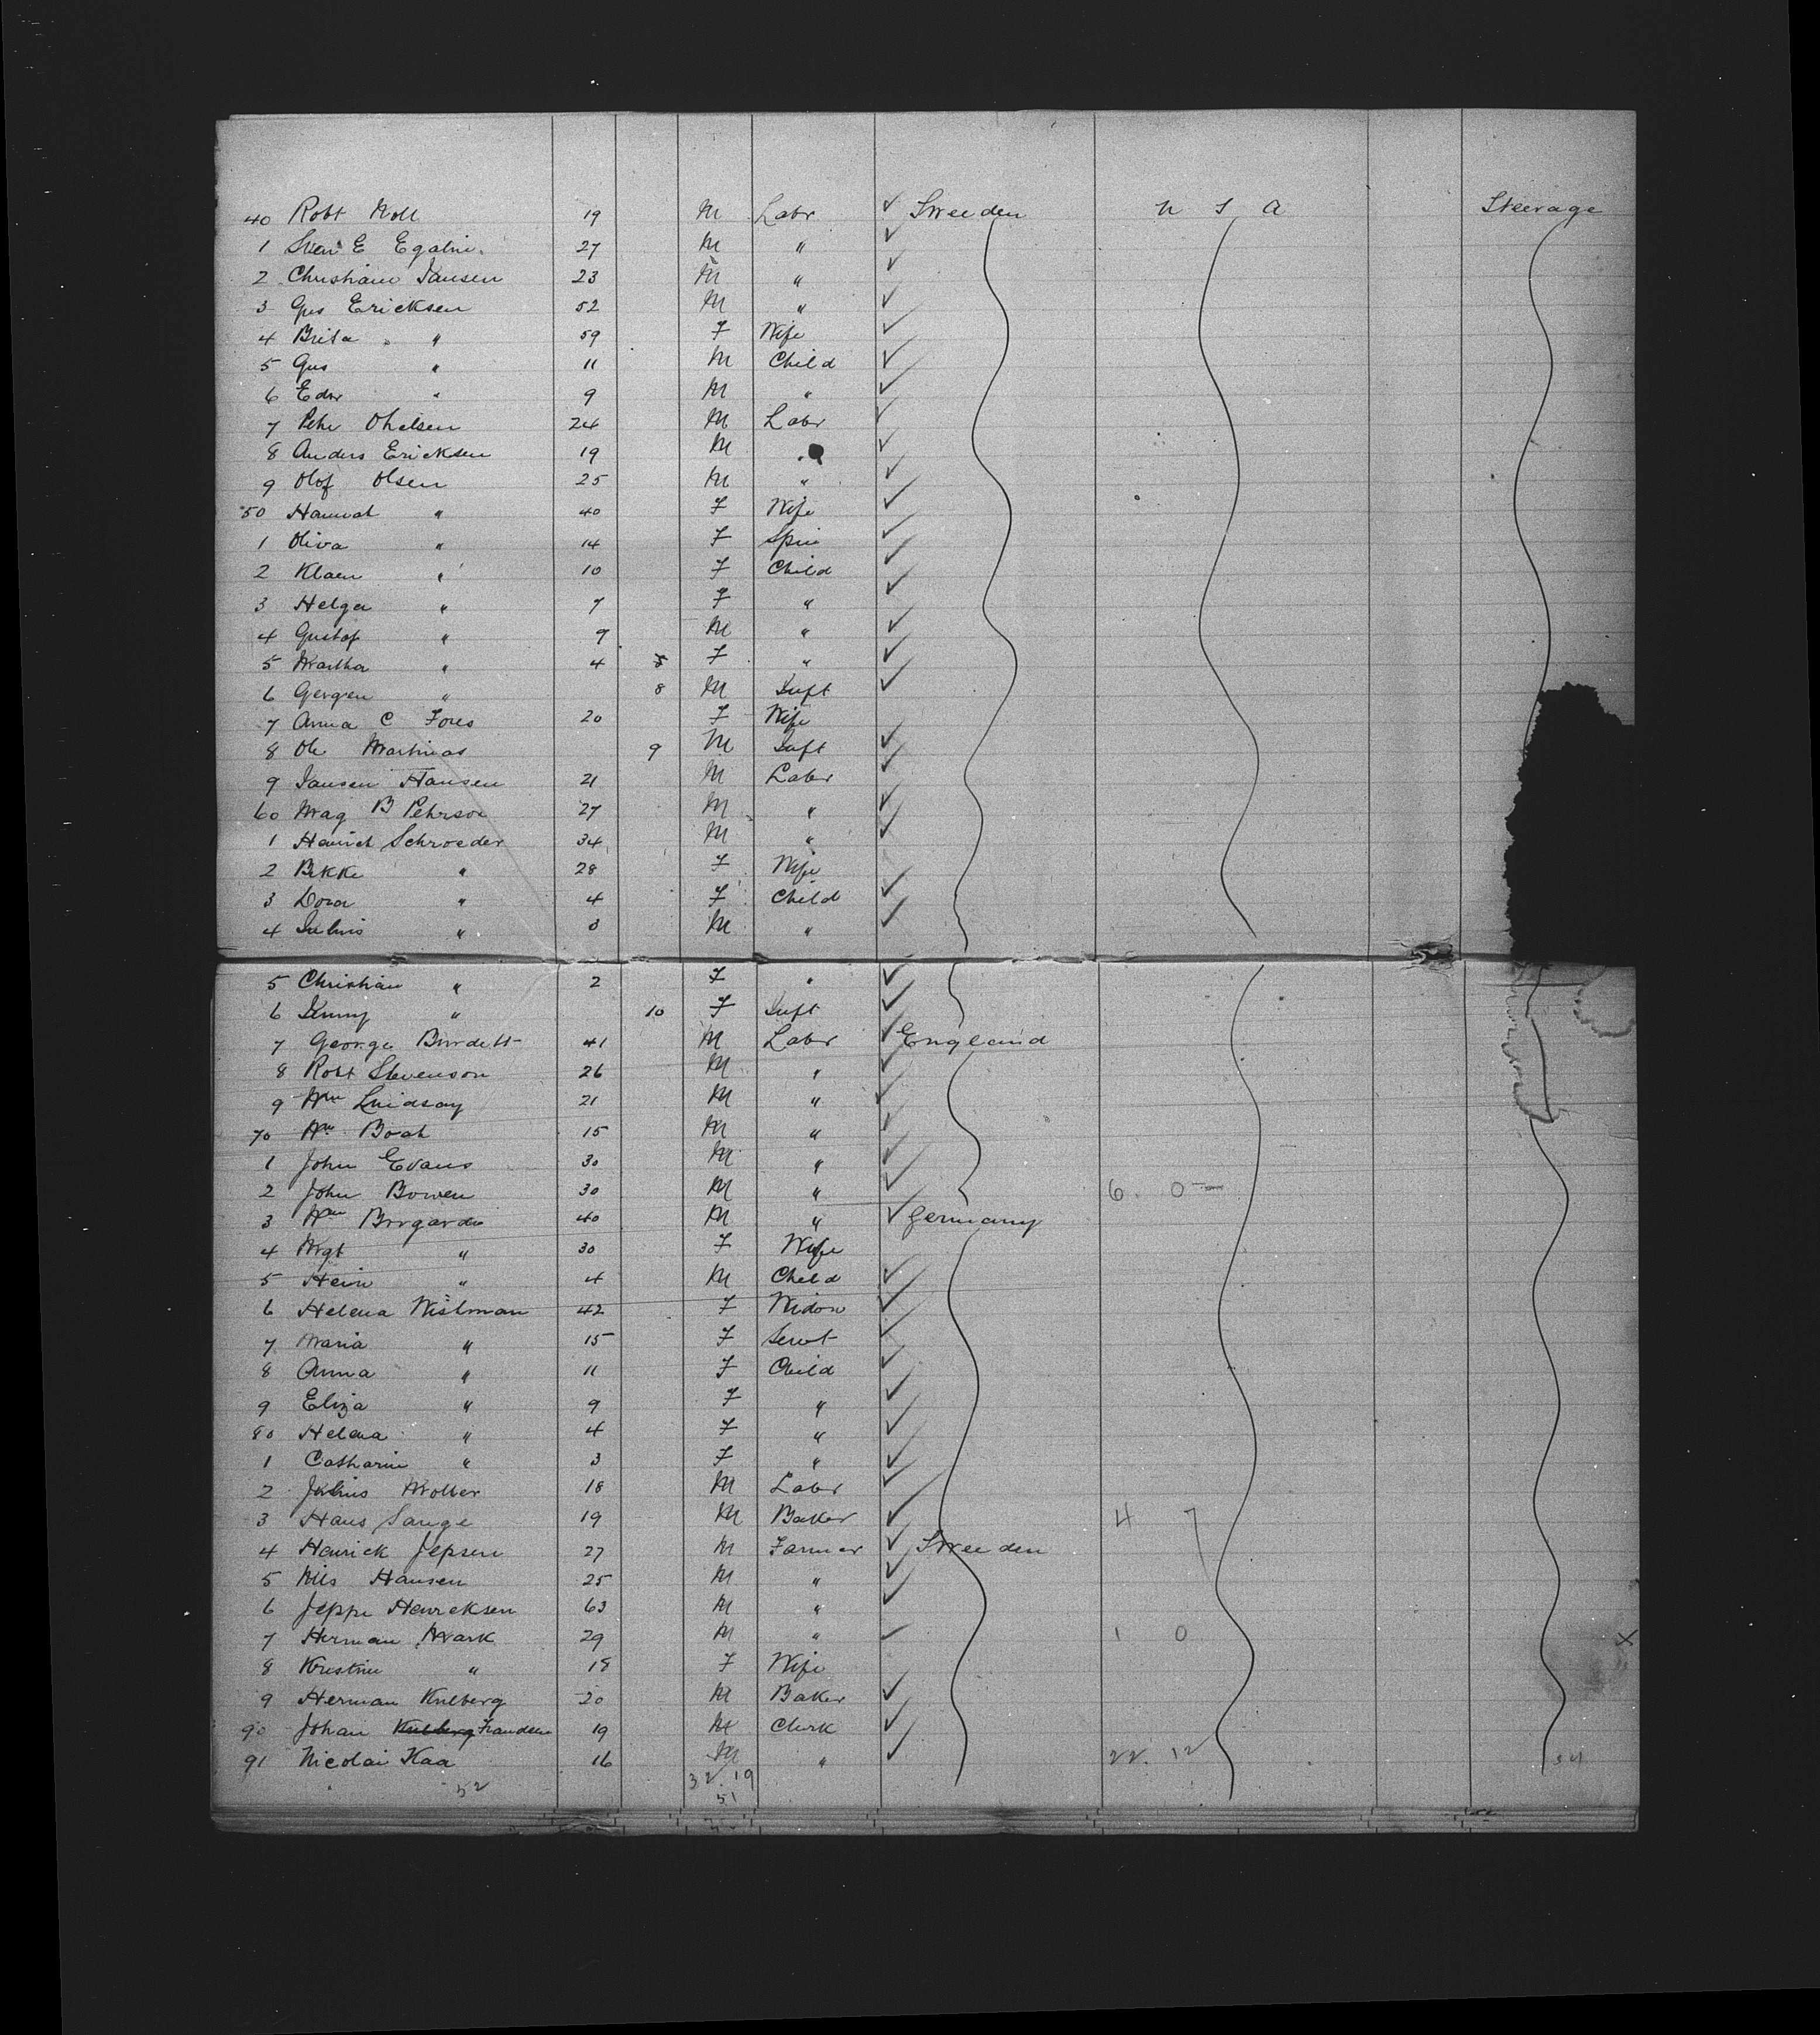 40 Robt Moll 19 M Labr ✓ Sweeden U S A Steerage
1 Sven E Egalin. 27 M " ✓
2 Christian Jansen 23 M " ✓
3 Gus Ericksen 52 M " ✓
4 Brita " 59 F Wife ✓
5 Gus " 11 M Child ✓
6 Edw " 9 M " ✓
7 Pehr Ohelsen 24 M Labr ✓
8 Anders Ericksen 19 M " ✓
9 Olof Olsen 25 M " ✓
50 Hannah " 40 F Wife ✓
1 Oliva " 14 F Spin ✓
2 Klaen " 10 F Child ✓
3 Helga " 7 F " ✓
4 Gustof " 9 M " ✓
5 Martha " 4 F " ✓
6 Gergen " 8 M Inft ✓
7 Anna C Fors 20 F Wife
8 Ole Martinas 9 M Inft ✓
9 Jansen Hansen 21 M Labr ✓
60 Mag B Pehrson 27 M " ✓
1 Heinrich Schroeder 34 M " ✓
2 Bekke " 28 F Wife
3 Dora " 4 F Child ✓
4 Julius " 3 M " ✓
5 Christian " 2 F " ✓
6 Jenny " 10 F Inft ✓
7 George Burdett 41 M Labr ✓ England
8 Robt Stevenson 26 M " ✓
9 Wm Lindsay 21 M " ✓
70 Wm Boah 15 M " ✓
1 John Evans 30 M " ✓
2 John Bowen 30 M " ✓ 6. 0
3 Wm Borgardn 40 M " ✓ Germany
4 Mgt " 30 F Wife
5 Hein " 4 M Child ✓
6 Helena Wislman 42 F Widow ✓
7 Maria " 15 F Servt ✓
8 Anna " 11 F Child ✓
9 Eliza " 9 F " ✓
80 Helena " 4 F " ✓
1 Catharin " 3 F " ✓
2 Julius Moller 18 M Labr ✓
3 Hans Lange 19 M Baker ✓ 4 7
4 Henrick Jepsen 27 M Farmer ✓ Sweeden
5 Nils Hansen 25 M " ✓
6 Jeppe Henreksen 63 M " ✓
7 Herman Mark 29 M " ✓ 1 0 X
8 Kristin " 18 F Wife
9 Herman Kulberg 20 M Baker ✓
90 Johan Kulberg Frandsen 19 M Clerk ✓
91 Nicolai Kaa 16 M " ✓ 22. 12
52 32. 19
51